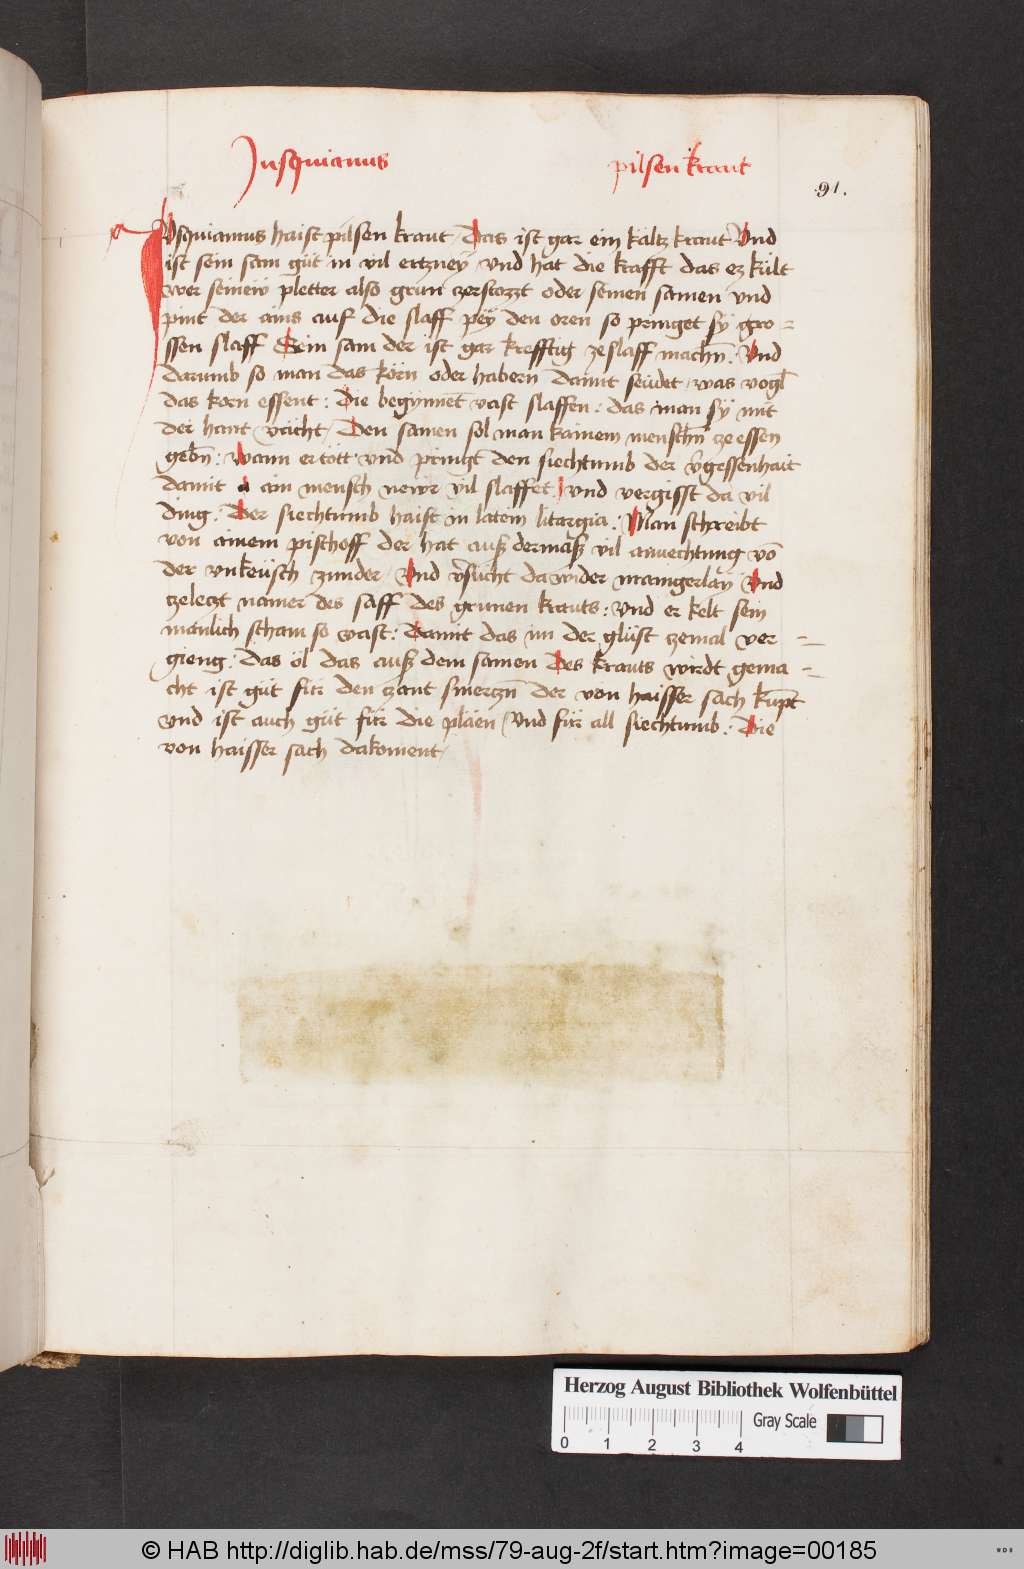 Jusquiamus pilsen kraut
91.
IUsquiamus haist pilsen kraut / Das ist gar ein kaltz kraut Vnd
ist sein sam güt in vil ertzneÿ vnd hat die krafft das ez kült
wer seinew pletter also grün zerstozzt oder seinen samen vnd
pint der ains auf die slaff peÿ den oren so pringet sÿ gro=
ssen slaff Sein sam der ist gar krefftig ze slaff machn̄. Vnd
darumb so man das korn oder habern damit seudet / was vogl
das korn essent : die begynnēt vast slaffen : das man sÿ mit
der hant vächt / Den samen sol man kainem menschn̄ ze essen
gebn̄ : Wann er tött vnd pringt den siechtumb der v̄gessenhait
damit a ain mensch newr vil slaffet / vnd vergisst da vil
ding : Der siechtumb haist in latein litargia : Man schreibt
von ainem pischoff der hat auß dermaß vil anvechtung vō
der vnkeüsch zunder / Vnd v̄sücht da wider manigerlaÿ Vnd
zeletzt namer des saff des grunen krauts : vnd er kelt sein
mänlich scham so vast : Damit das im der glüst zemal ver=
gieng : das öl das auß dem samen Des krauts wirdt gema=
cht ist güt für den zant smerczn̄ der von haisser sach kumpt
vnd ist auch güt für die pläen / vnd für all siechtumb : Die
von haisser sach dakoment /
Herzog August Bibliothek Wolfenbüttel
0 1 2 3 4 Gray Scale
© HAB http://diglib.hab.de/mss/79-aug-2f/start.htm?image=00185